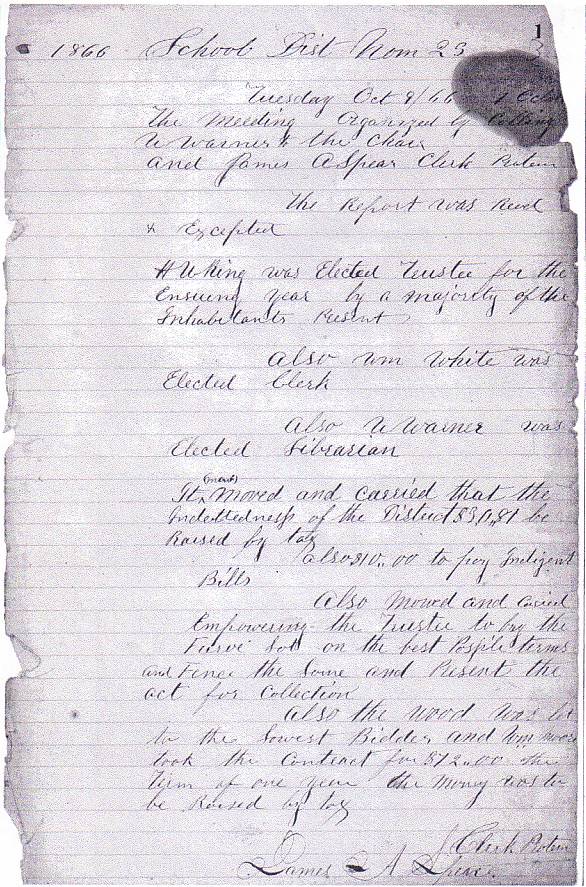 1
1866 School Dist Nom 23
Tuesday Oct 9/66
The Meeding Organized by Calling
U Warner to the Chair
and James A Spear Clerk Protem
The Report was Reed
& Excepted
H W King was Elected Trustee for the
Ensuing year by a majority of the
Inhabitants Present
Also Wm White was
Elected Clerk
Also U Warner was
Elected Librarian
(was)
It ^ Moved and Carried that the
Indebtedness of the District $30,,81 be
Raised by tax
also $10,,00 to pay Indigent
Bills
Also Moved and Caried
Empowering the Trustee to by the
Lot on the best Posple terms
and Fence the Same and Present the
act for Collection
Also the wood was let
to the Lowest Bidder and Wm
took the Contract for $12,,00 the
Tirm of one year the Money was to
be Raised by tax
Clerk Protem
James A Spear